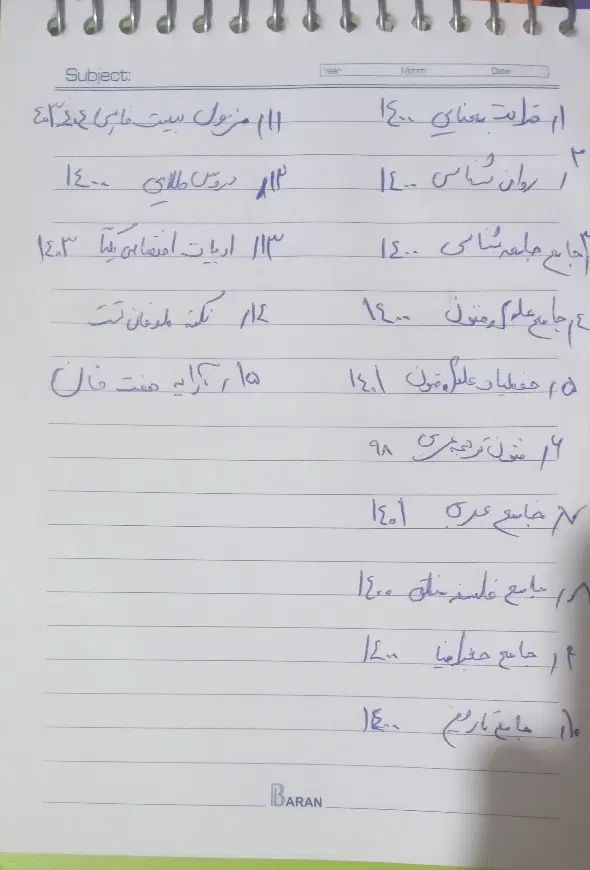 Subject:
Year Month Date
۱, قرابت معنایی ۱۴۰۰
۲, روان شناسی ۱۴۰۰
۳, جامع جامعه شناسی ۱۴۰۰
۴, جامع علوم و فنون ۱۴۰۰
۵, حفظیات علوم فنون ۱۴۰۱
۶, فنون ترجمه عربی ۹۸
۷, جامع عربی ۱۴۰۱
۸, جامع فلسفه منطق ۱۴۰۰
۹, جامع جغرافیا ۱۴۰۰
۱۰, جامع تاریخ ۱۴۰۰
۱۱, بیست فارسی
۱۲, دروس طلایی ۱۴۰۰
۱۳, ادبیات اختصاصی یکتا ۱۴۰۳
۱۴, نکته تست
۱۵, آرایه هفت خان
BARAN